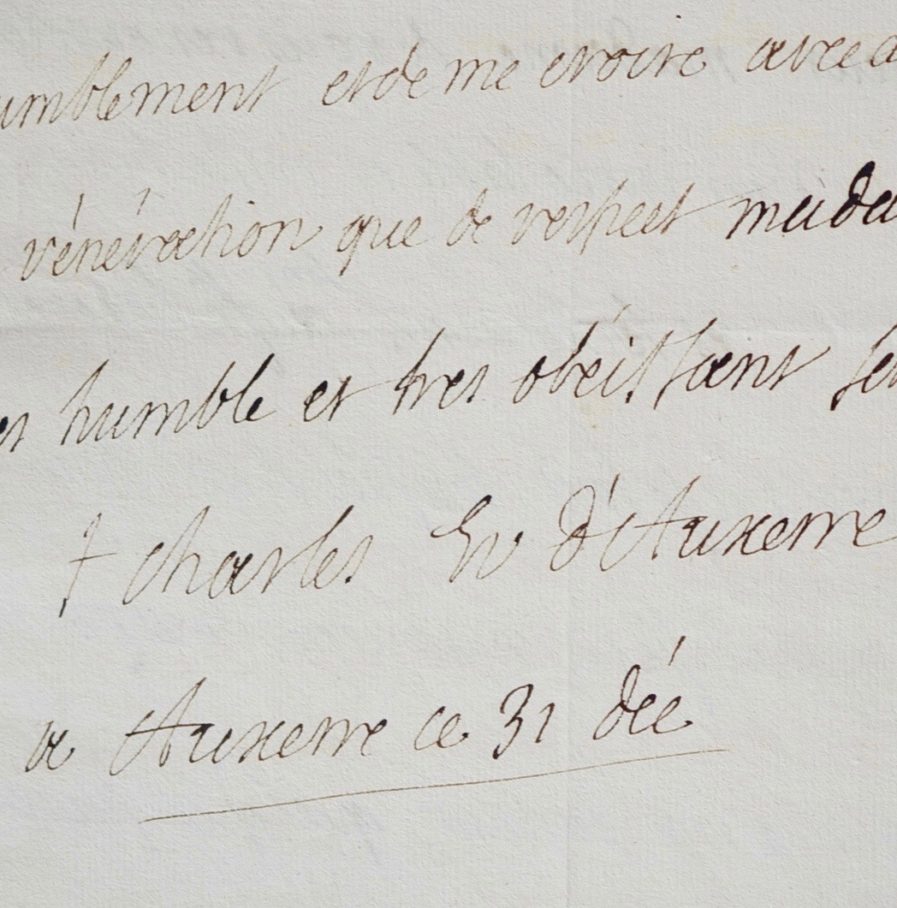 umblement et de me croire avec a
vénération que de respect mada
es humble et tres obéissant se
† Charles Ev d'Auxerre
a Auxerre ce 31 déc